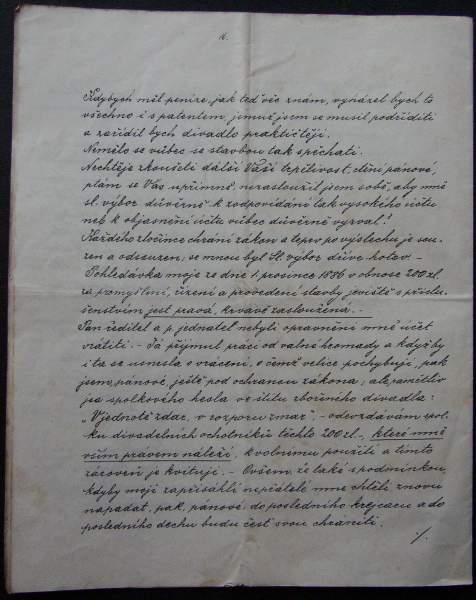 16.
Kdybych měl peníze, jak teď věc znám, vyházel bych to
všechno i s patentem, jimuž jsem se musil podříditi
a zařídil bych divadlo praktičtěji.
Nemělo se vůbec se stavbou tak spěchati.
Nechtěje zkoušeti dálší Vaši trpělivost, ctění pánové,
ptám se Vás upřímně, nezasloužil jsem sobě, aby mně
sl. výbor důvěrně k zodpovídání tak vysokého účtu
neb k objasnění účtu vůbec důvěrně vyzval?
Každého zločince chrání zákon a teprv po výslechu je sou-
zen a odsouzen; se mnou byl Sl. výbor dříve hotov. -
Pohledávka moje ze dne 1. prosince 1886 v obnose 200 zl.
za promyšlení, řízení a provedení stavby jeviště s příslu-
šenstvím jest pravá, krvavě zasloužená. -
Pan ředitel a p. jednatel nebyli oprávněni mně účet
vrátiti. - Já přijmul práci od valné hromady a kdyby
i ta se usnesla o vrácení, o čemž velice pochybuji, pak
jsem, pánové, ještě pod ochranou zákona; ale pamětliv
jsa spolkového hesla ve štítu zbořeného divadla:
„V jednotě zdar, v rozporu zmar" - odevzdávám spol-
ku divadelních ochotníků těchto 200 zl. -, které mně
vším právem náleží, k volnému použití a tímto
zároveň je kvituji. - Ovšem, že také s podmínkou,
kdyby moji zapřísáhlí nepřátelé mne chtěli znovu
napadat, pak, pánové, do posledního krejcaru a do
posledního dechu budu čest svou chrániti.
./.